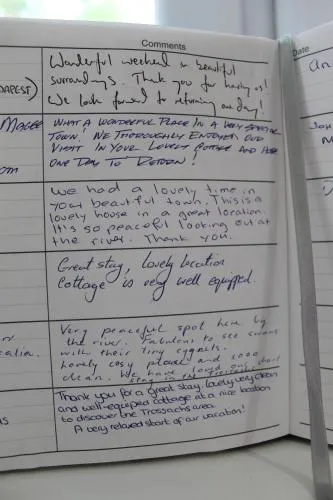 Comments
Date
Wonderful weekend in beautiful
surroundings. Thank you for having us!
We look forward to returning one day!
DAREST)
An
WHAT A WONDERFUL PLACE IN A VERY SPECIAL
TOWN! WE THOROUGHLY ENJOYED OUR
VISIT IN YOUR LOVELY COTTAGE AND HOPE
ONE DAY TO RETURN!
MAGEE
om
We had a lovely time in
your beautiful town. This is a
lovely house in a great location.
It's so peaceful looking out at
the river. Thank you.
Great stay, lovely location
cottage is very well equipped.
Very peaceful spot here by
the river. Fabulous to see swans
with their tiny cygnets.
Lovely cosy place and sooo
clean. We have loved our short
stay in the
ralia.
Thank you for a great stay, lovely, very clean
and well-equiped cottage at a nice location
to discover the Trossachs area
A very relaxed start of our vacation!
as